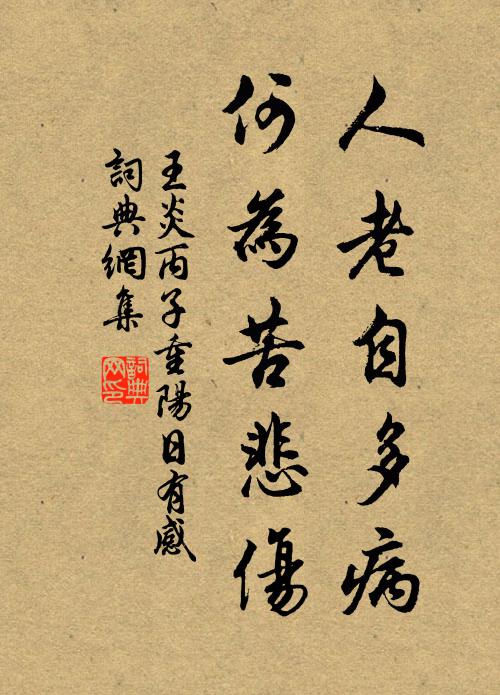 人老自多病
何為苦悲傷
王炎丙子重陽日有感
詞典網集
詞典网印